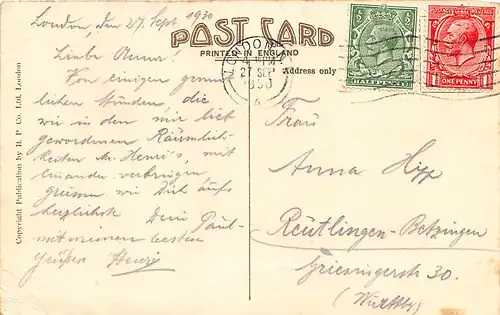 London, den 27. Sept. 1930
POST CARD
PRINTED IN ENGLAND
Address only
Copyright Publication by R. P. Co. Ltd. London
Liebe
Von einigen gemüt-
lichen Stunden, die
wir in den mir lieb
gewordenen Räumlich-
keiten Mr. Henri's, mit
einander verbringen
grüssen wir Dich aufs
herzlichste Dein Paul-
mit meinen besten
Grüßen
LONDON
27 SEP
1930
A
HALFPENNY
POSTAGE & INLAND REVENUE
ONE PENNY
Frau
Anna Hipp
Reutlingen-Betzingen
Griesingerstr 30.
(Württbg)